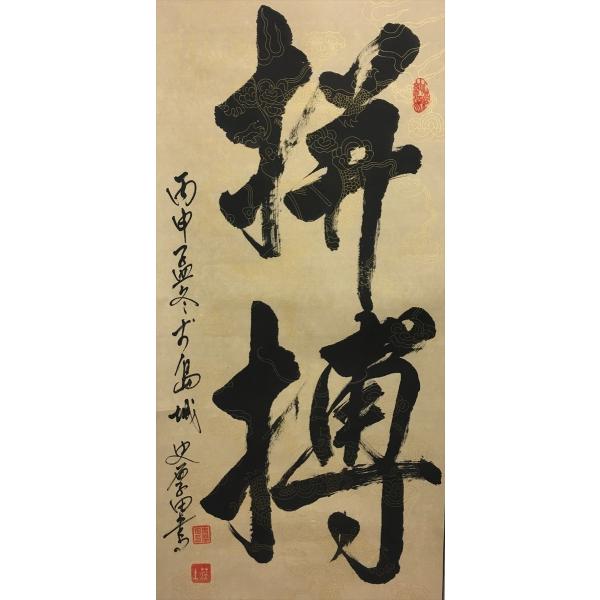 拼搏
丙申孟冬于岛城
史学田书